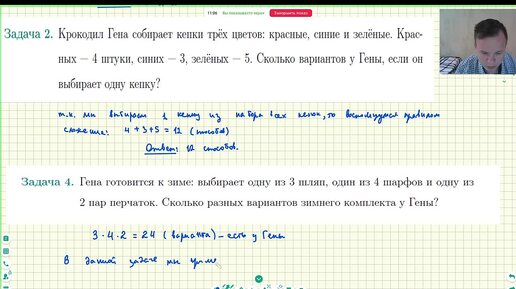 11:06
Задача 2. Крокодил Гена собирает кепки трёх цветов: красные, синие и зелёные. Крас-
ных — 4 штуки, синих — 3, зелёных — 5. Сколько вариантов у Гены, если он
выбирает одну кепку?
т.к. мы выбираем 1 кепку из набора всех кепок, то воспользуемся правилом
сложения: 4+3+5=12 (способов)
Ответ: 12 способов.
Задача 4. Гена готовится к зиме: выбирает одну из 3 шляп, один из 4 шарфов и одну из
2 пар перчаток. Сколько разных вариантов зимнего комплекта у Гены?
3·4·2=24 (варианта) - есть у Гены
В данной задаче мы приме